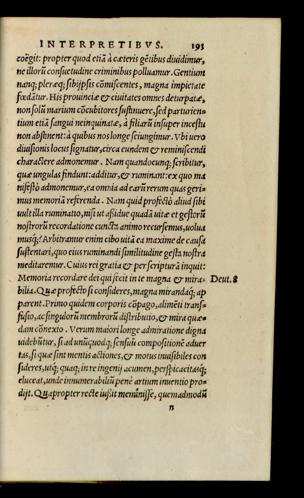 INTERPRETIBVS. 193
coëgit: propter quod etiā à cæteris gētibus diuidimur,
ne illorū consuetudine criminibus polluamur. Gentium
nanq; pleræq; sibijpsis cōmiscentes, magna impietate
fœdātur. His prouinciæ & ciuitates omnes deturpatæ,
non solū marium cōcubitores sustinuere, sed parturien-
tium etiā sanguine inquinatæ, à filiarū insuper incestu
non abstinent: à quibus nos longe seiungimur. Vbi uero
diuisionis locus signatur, circa eundem & reminiscendi
charactere admonemur. Nam quandocunq; scribitur,
quæ ungulas findunt: additur, & ruminant: ex quo ma
nifestò admonemur, ea omnia ad earū rerum quas geri-
mus memoriā referenda. Nam quid profectò aliud sibi
uult illa ruminatio, nisi ut aßidue quadā uitæ et gestorū
nostrorū recordatione cuncta animo recursemus, uolua
musq;? Arbitramur enim cibo uitā ea maxime de causa
sustentari, quo eius ruminandi similitudine gesta nostra
meditaremur. Cuius rei gratia & per scripturā inquit:
Memoria recordare dei qui fecit in te magna & mira- Deut. 8
bilia. Quæ profectò si consideres, magna mirandaq; ap
parent. Primo quidem corporis cōpago, alimēti trans-
fusio, ac singulorū membrorū distributio, & mira quæ-
dam cōnexio. Verum maiori longe admiratione digna
uidebūtur, si ad unūquodq; sensuū compositionē aduer
tas, si quæ sint mentis actiones, & motus inuisibiles con
sideres, utq; quaq; in re ingenij acumen, perspicacitasq;
eluceat, unde innumerabiliū penè artium inuentio pro-
dijt. Quapropter recte iußit meminisse, quemadmodū
n